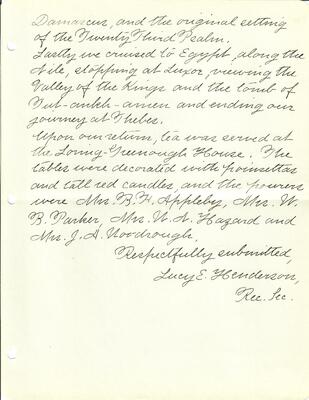 Damascus, and the original setting
of the Twenty Third Psalm.
Lastly we cruised to Egypt, along the
Nile, stopping at Luxor, viewing the
Valley of the Kings and the tomb of
Tut-ankh-amen and ending our
journey at Thebes.
Upon our return, tea was served at
the Loring-Greenough House. The
tables were decorated with poinsettas
and tall red candles, and the pourers
were Mrs. B. H. Appleby, Mrs. W.
B. Parker, Mrs. W. A. Hazard and
Mrs. J. A. Woodrough.
Respectfully submitted,
Lucy E. Henderson,
Rec. Sec.